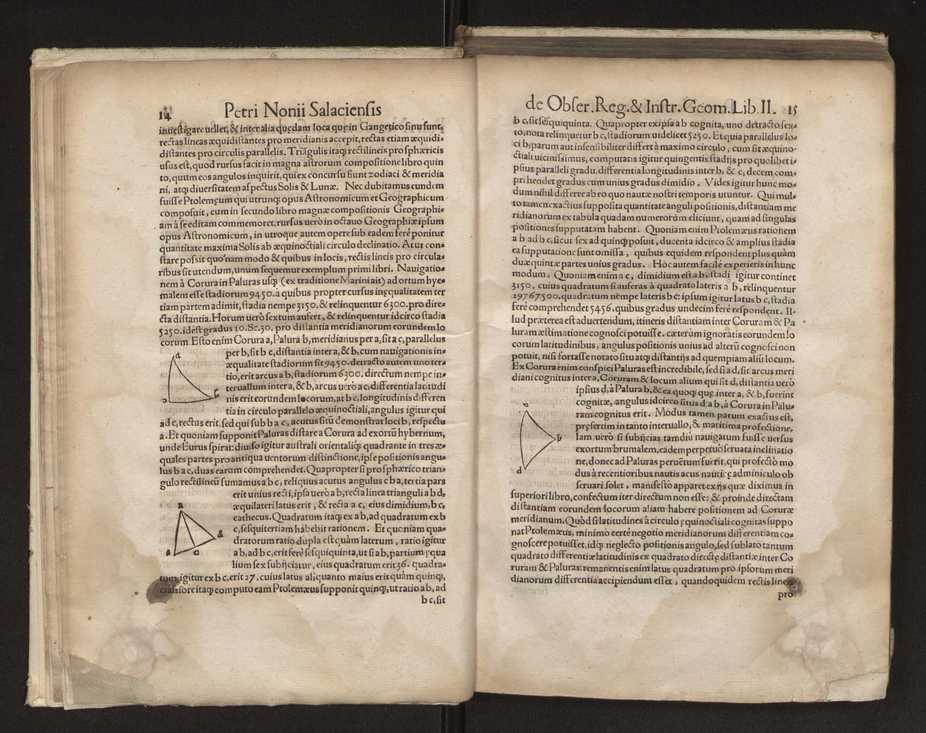 14 Petri Nonii Salaciensis
inuestigare vellet, & inter alia quędam loca quę in Gangetico sinu sunt,
rectas lineas æquidistantes pro meridianis accepit, rectas etiam æquidi-
distantes pro circulis parallelis. Triāgulis itaq; rectilineis pro sphæricis
usus est, quod rursus facit in magna astrorum compositione libro quin
to, quum eos angulos inquirit, qui ex concursu fiunt zodiaci & meridia
ni, atq; diuersitatem aspectus Solis & Lunæ. Nec dubitamus eundem
fuisse Ptolemęum qui utrunq; opus Astronomicum et Geographicum
composuit, cum in secundo libro magnæ compositionis Geographi-
am à se editam commemoret, rursus verò in octauo Geographiæ ipsum
opus Astronomicum, in utroque autem opere sub eadem ferè ponitur
quantitate maxima Solis ab æquinoctiali circulo declinatio. At ut con-
stare possit quo nam modo & quibus in locis, rectis lineis pro circula-
ribus sit utendum, unum sequemur exemplum primi libri. Nauigatio-
nem à Corura in Paluras usq; (ex traditione Marini ait) ad ortum hye-
malem esse stadiorum 9450. à quibus propter cursus inęqualitatem ter
tiam partem adimit, stadia nempe 3150, & relinquentur 6300. pro dire-
cta distantia. Horum verò sextum aufert, & relinquentur idcirco stadia
5250. id est gradus 10. Sc. 30. pro distantia meridianorum eorundem lo
corum. Esto enim Corura a, Palura b, meridianus per a, sit a c, parallelus
per b, sit b c, distantia inter a, & b, cum nauigationis in-
æqualitate stadiorum sit 9450. detracto autem uno ter-
tio, erit arcus a b, stadiorum 6300. directum nempe in-
teruallum inter a, & b, arcus uerò a c, differentia latitudi
nis erit eorundem locorum, at b c, longitudinis differen
tia in circulo parallelo æquinoctiali, angulus igitur qui
ad c, rectus erit, sed qui sub b a c, acutus situ demonstrat loci b, respectu
a. Et quoniam supponit Paluras distare a Corura ad exortū hybernum,
unde Eurus spirat: diuiso igitur australi orientaliq; quadrante in tres æ-
quales partes pro antiqua uentorum distinctione, ipse positionis angu-
lus b a c, duas earum comprehendet. Quapropter si pro sphærico trian-
gulo rectilineū sumamus a b c, reliquus acutus angulus c b a, tertia pars
erit unius recti, ipsa uerò a b, recta linea trianguli a b d,
æquilateri latus erit, & recta a c, eius dimidium, b c,
cathecus. Quadratum itaq; ex a b, ad quadratum ex b
c, sesquitertiam habebit rationem. Et quoniam qua-
dratorum ratio dupla est quàm laterum, ratio igitur
a b, ad b c, erit ferè sesquiquinta, ut si a b, partium ęqua
lium sex subijciatur, eius quadratum erit 36. quadra-
tum igitur ex b c, erit 27. cuius latus aliquanto maius erit quàm quinq;,
crassiore itaq; computo eam Ptolemæus supponit quinq;, ut ratio a b, ad
b c, sit
a
b
c
A
B
C
D
de Obser. Reg. & Instr. Geom. Lib. II. 15
b c, sit sesquiquinta. Quapropter ex ipsa a b cognita, uno detracto sex-
to, nota relinquetur b c, stadiorum uidelicet 5250. Et quia parallelus lo-
ci b, parum aut insensibiliter differt à maximo circulo, cum sit æquino-
ctiali uicinissimus, computans igitur quingentis stadijs pro quolibet i-
psius paralleli gradu, differentia longitudinis inter b, & c, decem com-
prehendet gradus cum unius gradus dimidio. Vides igitur hunc mo-
dum nihil differre ab eo quo nautæ nostri temporis utuntur. Qui mul-
to tamen exactius supposita quantitate anguli positionis, distantiam me
ridianorum ex tabula quadam numerorum eliciunt, quam ad singulas
positiones supputatam habent. Quoniam enim Ptolemæus rationem
a b ad b c, sicut sex ad quinq; posuit, ducenta idcirco & amplius stadia
ea supputatione sunt omissa, quibus equidem respondent plus quàm
duæ quintæ partes unius gradus. Hoc autem facilè experieris in hunc
modum. Quoniam enim a c, dimidium est a b, stadia igitur continet
3150, cuius quadratum si auferas à quadrato lateris a b, relinquetur
29767500, quadratum nempe lateris b c: ipsum igitur latus b c, stadia
ferè comprehendet 5456. quibus gradus undecim ferè respondent. Il-
lud præterea est aduertendum, itineris distantiam inter Coruram & Pa
luram æstimatione cognosci potuisse. cæterùm ignoratis eorundem lo
corum latitudinibus, angulus positionis unius ad alterū cognosci non
potuit, nisi fortasse notato situ atq; distantijs ad quempiam aliū locum.
Ex Corura enim conspici Paluras est incredibile, sed si a d, sit arcus meri
diani cognitus inter a, Coruram & locum alium qui sit d, distantia uerò
ipsius d, à Palura b, & ea quoq; quę inter a, & b, fuerint
cognitæ, angulus idcirco situs d a b, à Corura in Palu-
ram cognitus erit. Modus tamen parum exactus est,
pręsertim in tanto interuallo, & maritima profectione.
Iam uerò si subijcias tamdiu nauigatum fuisse uersus
exortum brumalem, eadem perpetuò seruata inclinatio
ne, donec ad Paluras peruētum fuerit, qui profectò mo
dus à recentioribus nautis acus nauticę adminiculo ob
seruari solet, manifestò apparet ex ijs quæ diximus in
superiori libro, confectum iter directum non esse: & proinde directam
distantiam eorundem locorum aliam habere positionem ad Coruræ
meridianum. Quòd si latitudines à circulo ęquinoctiali cognitas suppo
nat Ptolemæus, minimo certè negotio meridianorum differentiam co-
gnoscere potuisset, idq; neglecto positionis angulo, sed sublato tantum
quadrato differentiæ latitudinis ex quadrato directę distantiæ inter Co
ruram & Paluras: remanentis enim latus quadratum pro ipsorum meri
dianorum differentia accipiendum esset, quandoquidem rectis lineis
pro
a
b
d